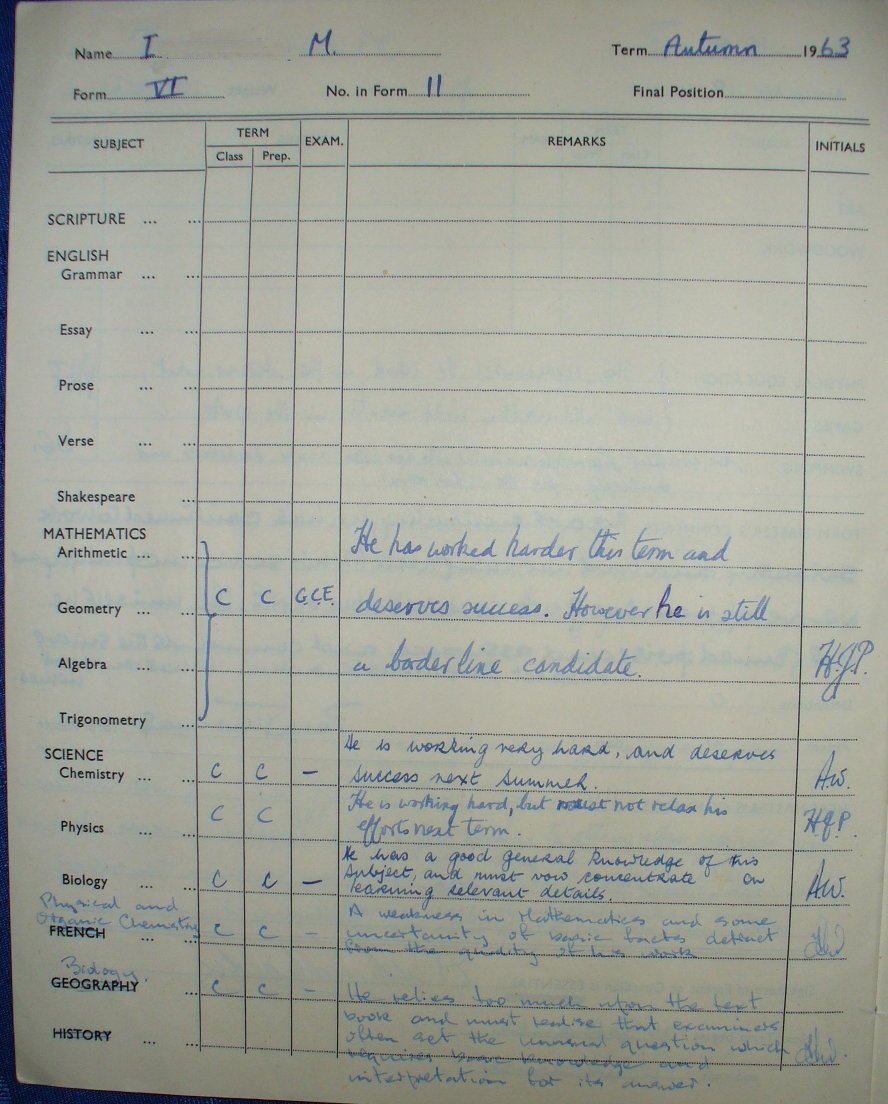 Name I M. Term Autumn 1963
Form VI No. in Form 11 Final Position
SUBJECT TERM EXAM. REMARKS INITIALS
Class Prep.
SCRIPTURE ... ...
ENGLISH
Grammar ... ...
Essay ... ...
Prose ... ...
Verse ... ...
Shakespeare ...
MATHEMATICS
Arithmetic ... ... He has worked harder this term and
Geometry ... ... C C G.C.E. deserves success. However he is still
Algebra ... ... a borderline candidate. H.J.P.
Trigonometry ...
SCIENCE He is working very hard, and deserves
Chemistry ... ... C C – success next summer. A.W.
He is working hard, but must not relax his
Physics ... ... C C efforts next term. H.J.P.
He has a good general knowledge of this
Biology ... ... C C – subject, and must now concentrate on
learning relevant details. A.W.
Physical and A weakness in Mathematics and some
Organic Chemistry
FRENCH ... ... C C – uncertainty of basic facts detract
from the quality of his work
Biology.
GEOGRAPHY ... C C – He relies too much upon the text
book and must realise that examiners
HISTORY ... ... often set the unusual question which
requires knowledge and
interpretation for its answer.